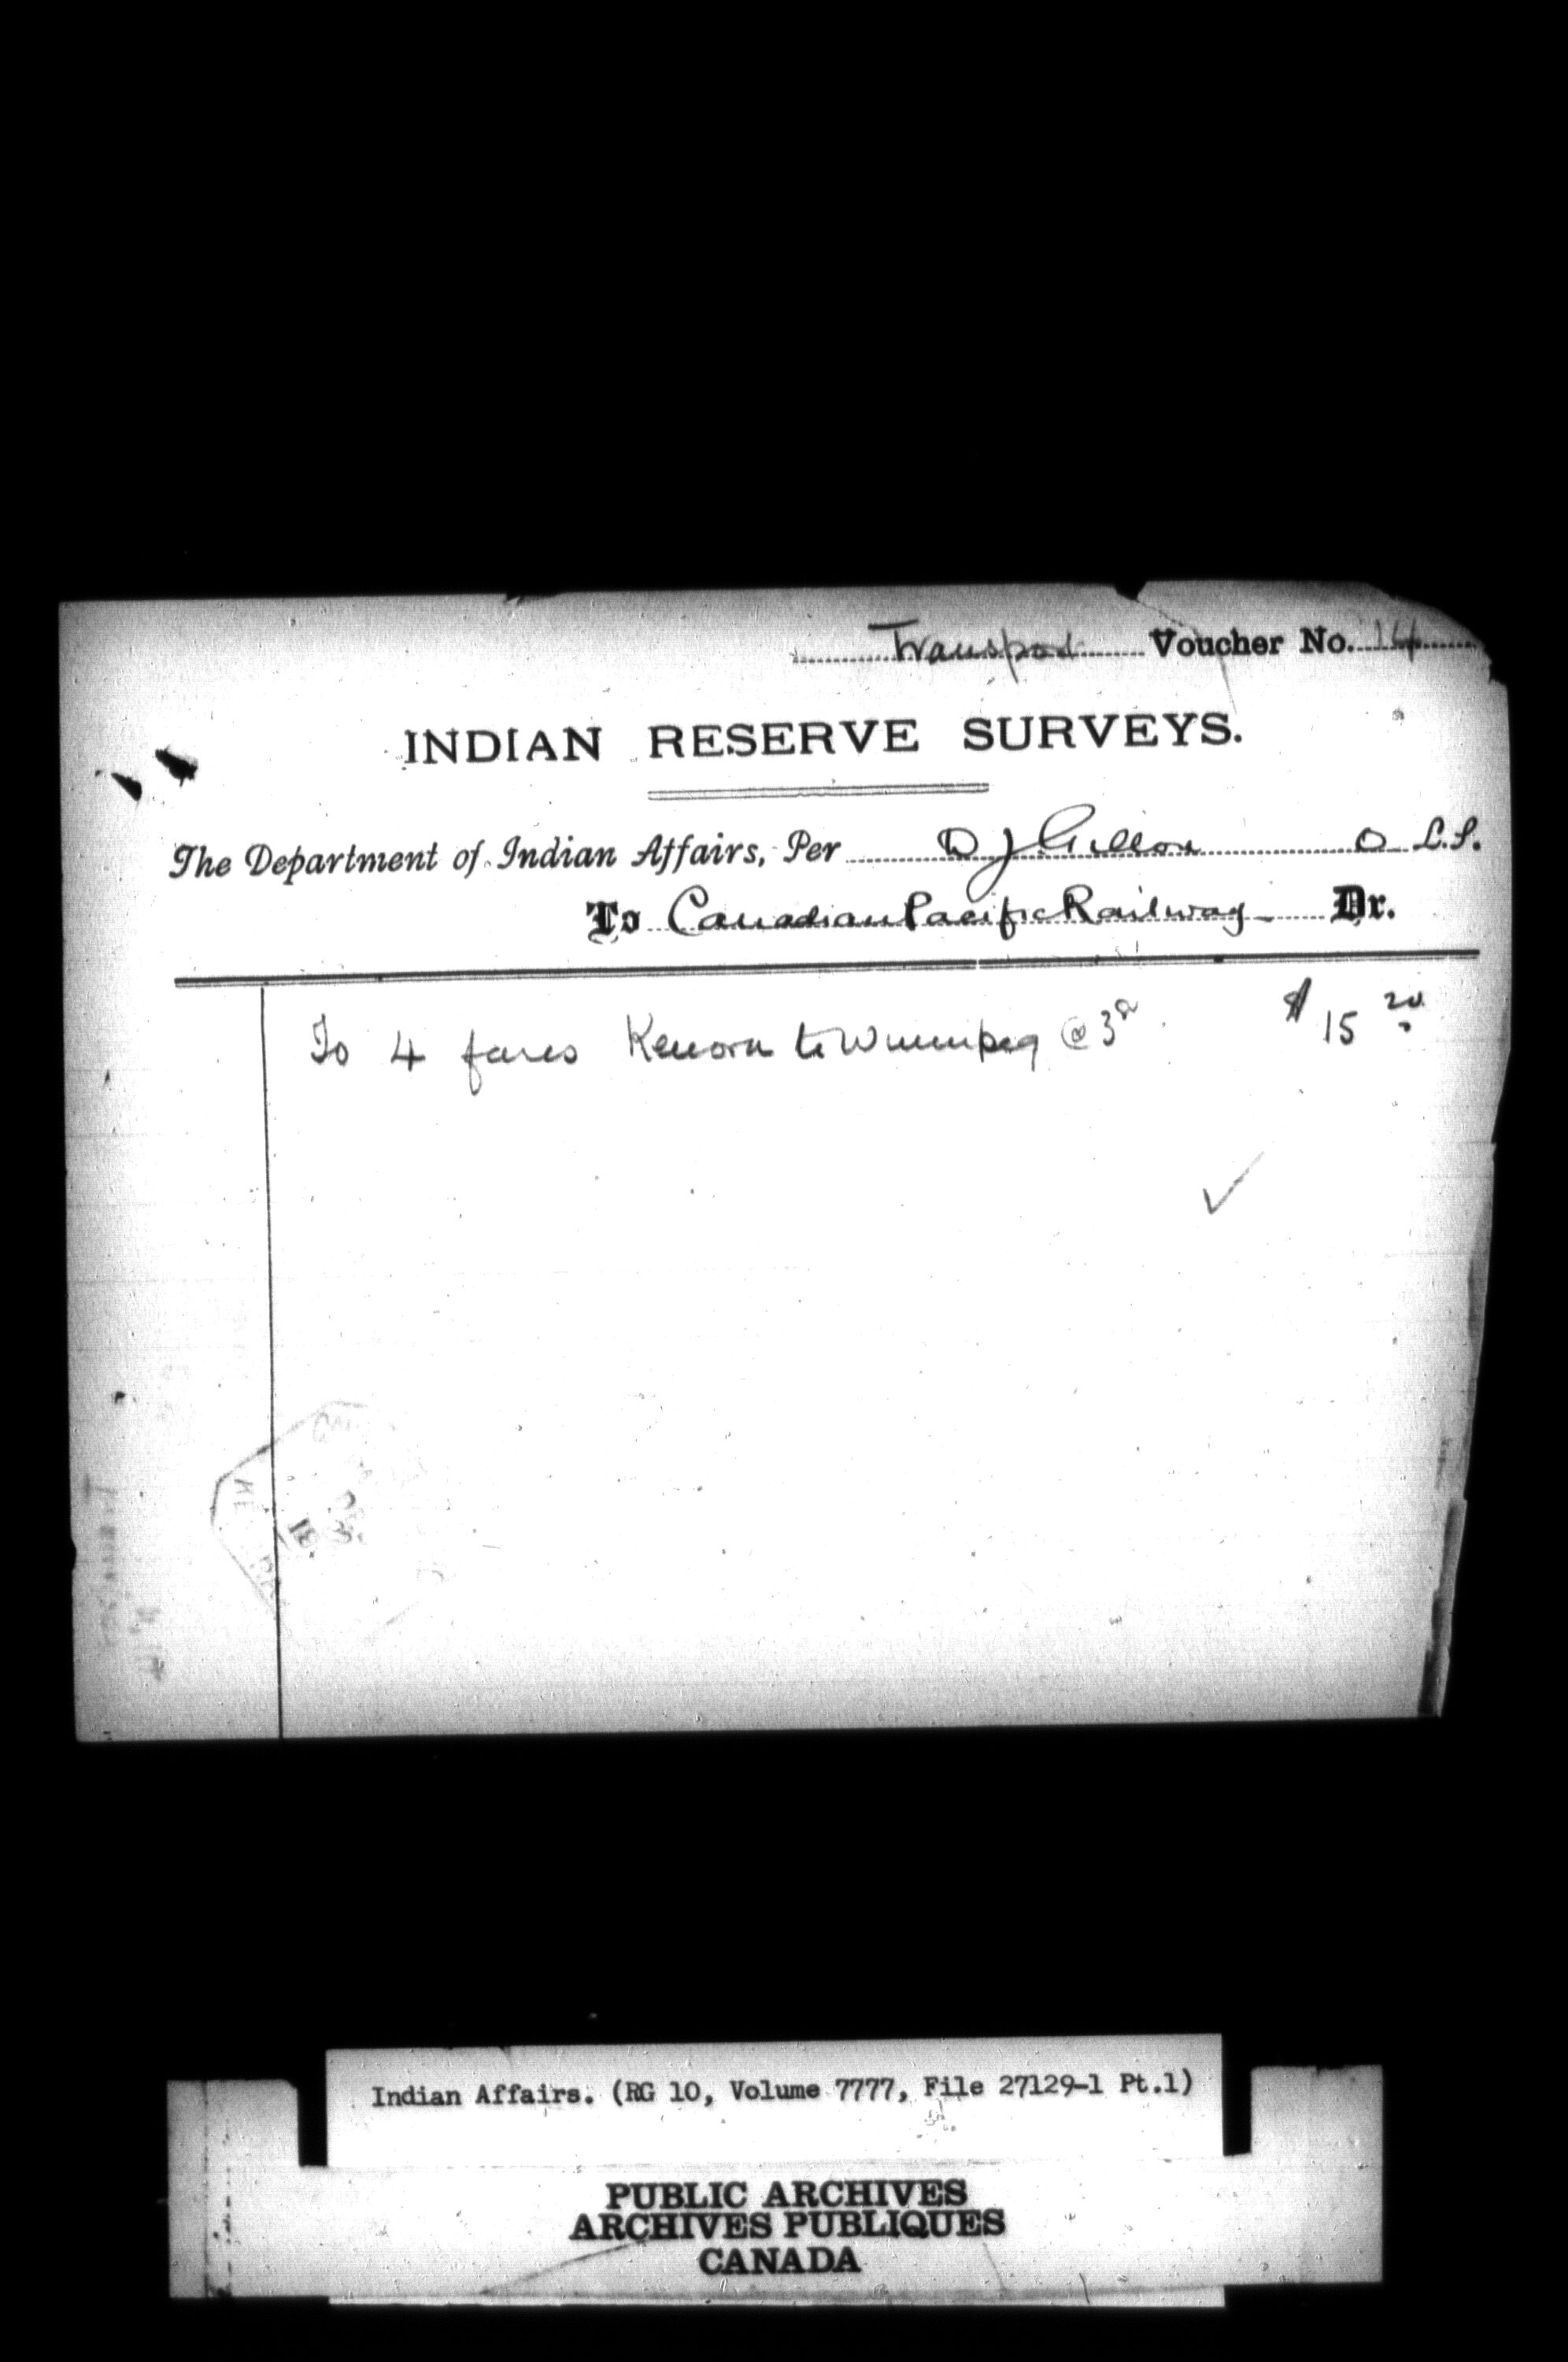 Transport Voucher No. 14
INDIAN RESERVE SURVEYS.
The Department of Indian Affairs, Per D J Gillon O L.S.
To Canadian Pacific Railway Dr.
To 4 fares Kenora to Winnipeg @ 3 $15 20
Indian Affairs. (RG 10, Volume 7777, File 27129-1 Pt.1)
PUBLIC ARCHIVES
ARCHIVES PUBLIQUES
CANADA